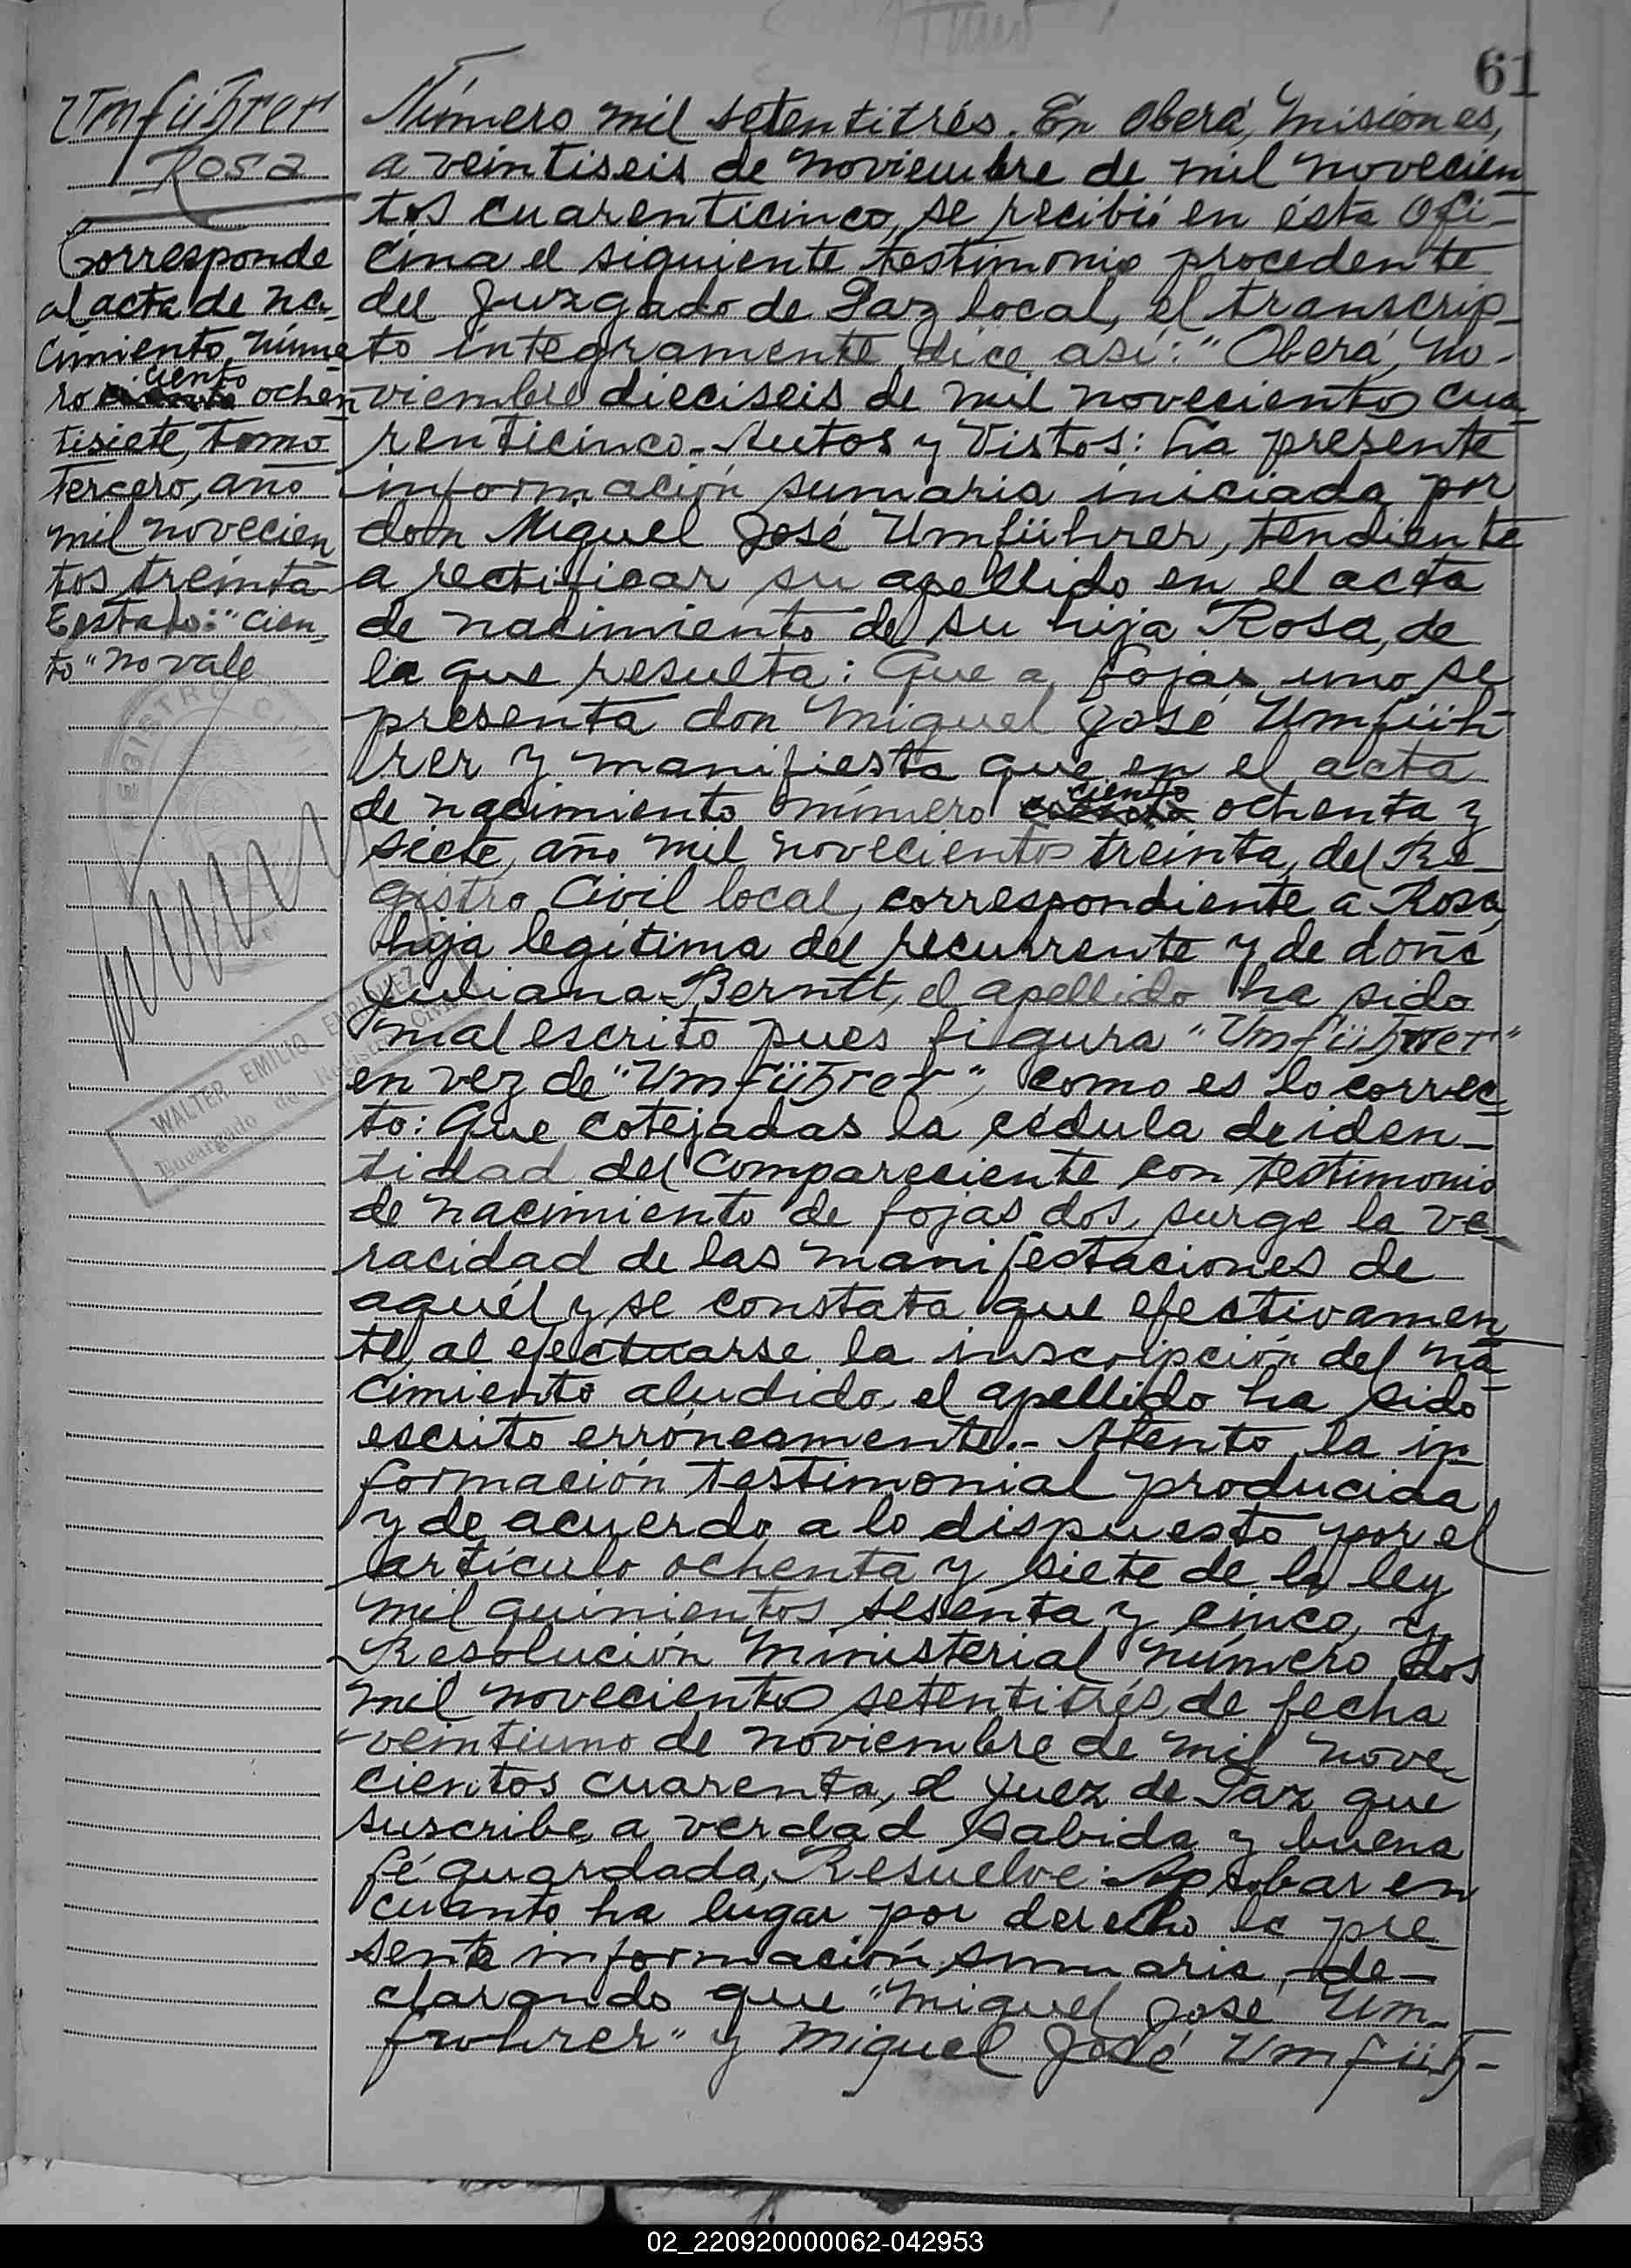 61
Umführer
Rosa
Corresponde
al acta de na-
cimiento, núme-
ro ciento ochen-
tisiete, tomo
Tercero, año
mil novecien
tos treinta
E/estado: "cien-
to" no vale
REGISTRO CIVIL
WALTER EMILIO ENRIQUEZ
Encargado de Registro Civil
Número mil setentitrés. En Oberá, Misiones,
a veintiseis de noviembre de mil novecien
tos cuarenticinco, se recibió en ésta Ofi-
cina el siguiente testimonio procedente
del Juzgado de Paz local, el transcrip-
to íntegramente dice así: "Oberá, no-
viembre dieciseis de mil novecientos cua-
renticinco.- Autos y Vistos: La presente
información sumaria iniciada por
don Miguel José Umführer, tendiente
a rectificar su apellido en el acta
de nacimiento de su hija Rosa, de
la que resulta: Que a fojas uno se
presenta don Miguel José Umfüh-
rer y manifiesta que en el acta
de nacimiento número ciento ochenta y
siete, año mil novecientos treinta, del Re-
gistro Civil local, correspondiente a Rosa,
hija legítima del recurrente y de doña
Juliana Berntt, el apellido ha sido
mal escrito pues figura
en vez de "Umführer", como es lo correc-
to: Que cotejadas la cédula de iden-
tidad del compareciente con testimonio
de nacimiento de fojas dos, surge la ve-
racidad de las manifestaciones de
aquél y se constata que efectivamen
te, al efectuarse la inscripción del na-
cimiento aludido, el apellido ha sido
escrito erróneamente.- Atento la in-
formación testimonial producida
y de acuerdo a lo dispuesto por el
artículo ochenta y siete de la ley
mil quinientos sesenta y cinco, y
Resolución Ministerial número dos
mil novecientos setentitrés de fecha
veintiuno de noviembre de mil nove-
cientos cuarenta, el Juez de Paz que
suscribe, a verdad sabida y buena
fé guardada, Resuelve: Aprobar en
cuanto ha lugar por derecho la pre-
sente información sumaria, de-
clarando que "Miguel José Um-
fuohrer" y Miguel José Umfüh-
02_220920000062-042953